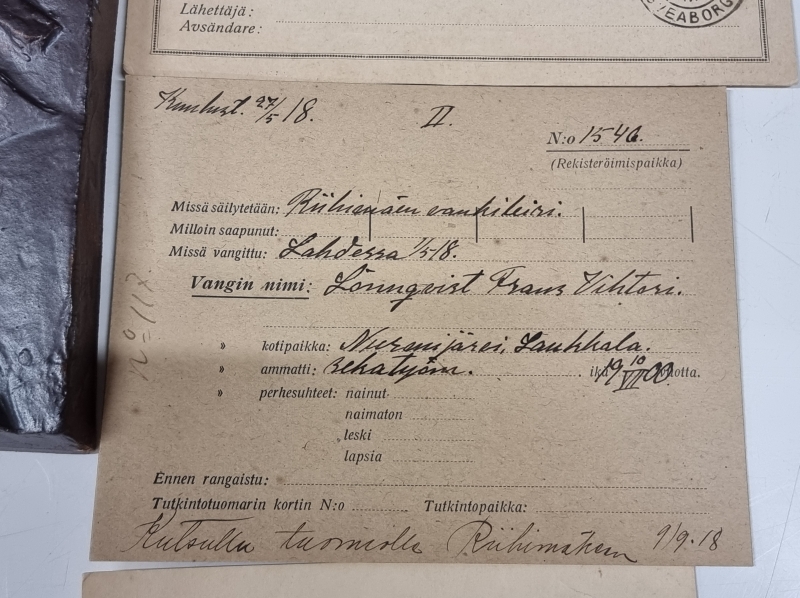 Lähettäjä:
Avsändare:
VEABORG
Kuulust. 27/5 18.
II.
N:o 1546.
(Rekisteröimispaikka)
Missä säilytetään: Riihimäen vankileiri.
Milloin saapunut:
Missä vangittu: Lahdessa 1/5 18.
Vangin nimi: Lönnqvist Frans Vihtori.
" kotipaikka: Nurmijärvi, Laukkala.
" ammatti: sekatyöm. ikä 19 10/VII 00 vuotta.
" perhesuhteet: nainut
naimaton
leski
lapsia
Ennen rangaistu:
Tutkintotuomarin kortin N:o Tutkintopaikka:
Kutsuttu tuomiolle Riihimäkeen 9/9. 18
no 117.